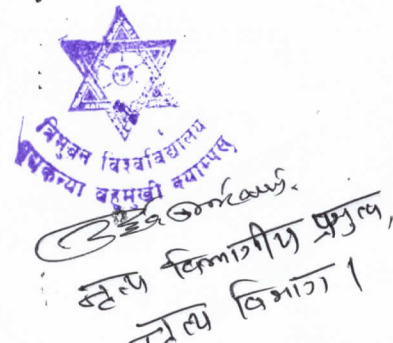 त्रिभुवन विश्वविद्यालय
पद्मकन्या वहुमुखी क्याम्पस्
नृत्य विभागीय प्रमुख,
नृत्य विभाग।